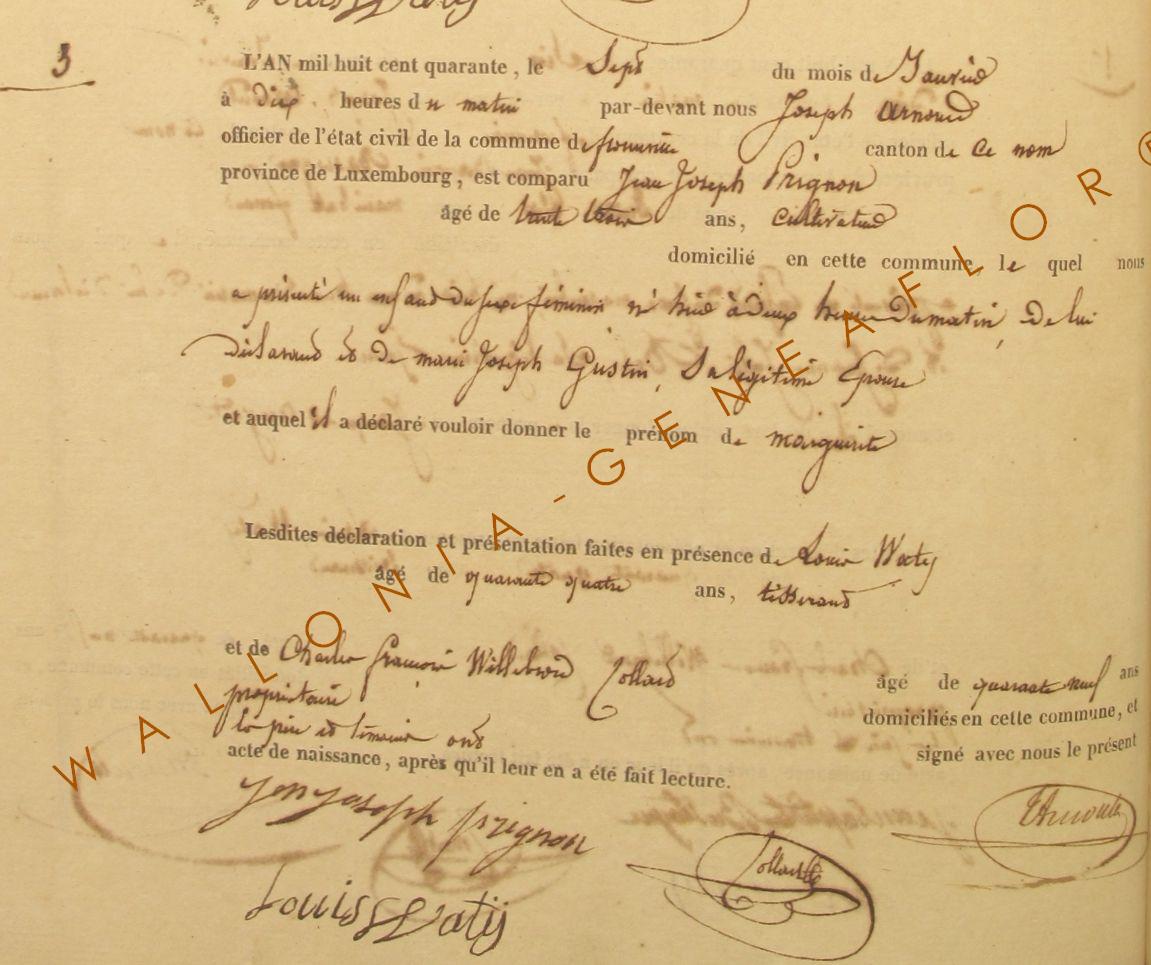 3
L'AN mil huit cent quarante, le Sept du mois de Janvier
à dix heures du matin par-devant nous Joseph Arnould
officier de l'état civil de la commune de canton de ce nom
province de Luxembourg, est comparu Jean Joseph Prignon
âgé de trente trois ans, cultivateur
domicilié en cette commune, le quel nous
a présenté un enfant du sexe féminin né hier à deux heures du matin, de lui
déclarant et de marie Joseph Gustin, Sa légitime Epouse
et auquel il a déclaré vouloir donner le prénom de marguerite
Lesdites déclaration et présentation faites en présence de Louis Waty
âgé de quarante quatre ans, tisserand
et de Charles françois Willebrord Collard âgé de quarante neuf ans
propriétaire domiciliés en cette commune, et
les père et témoins ont signé avec nous le présent
acte de naissance, après qu'il leur en a été fait lecture.
Jean Joseph prignon
JArnould
Collard
Louis Waty
WALLONIA-GENEAFLOR